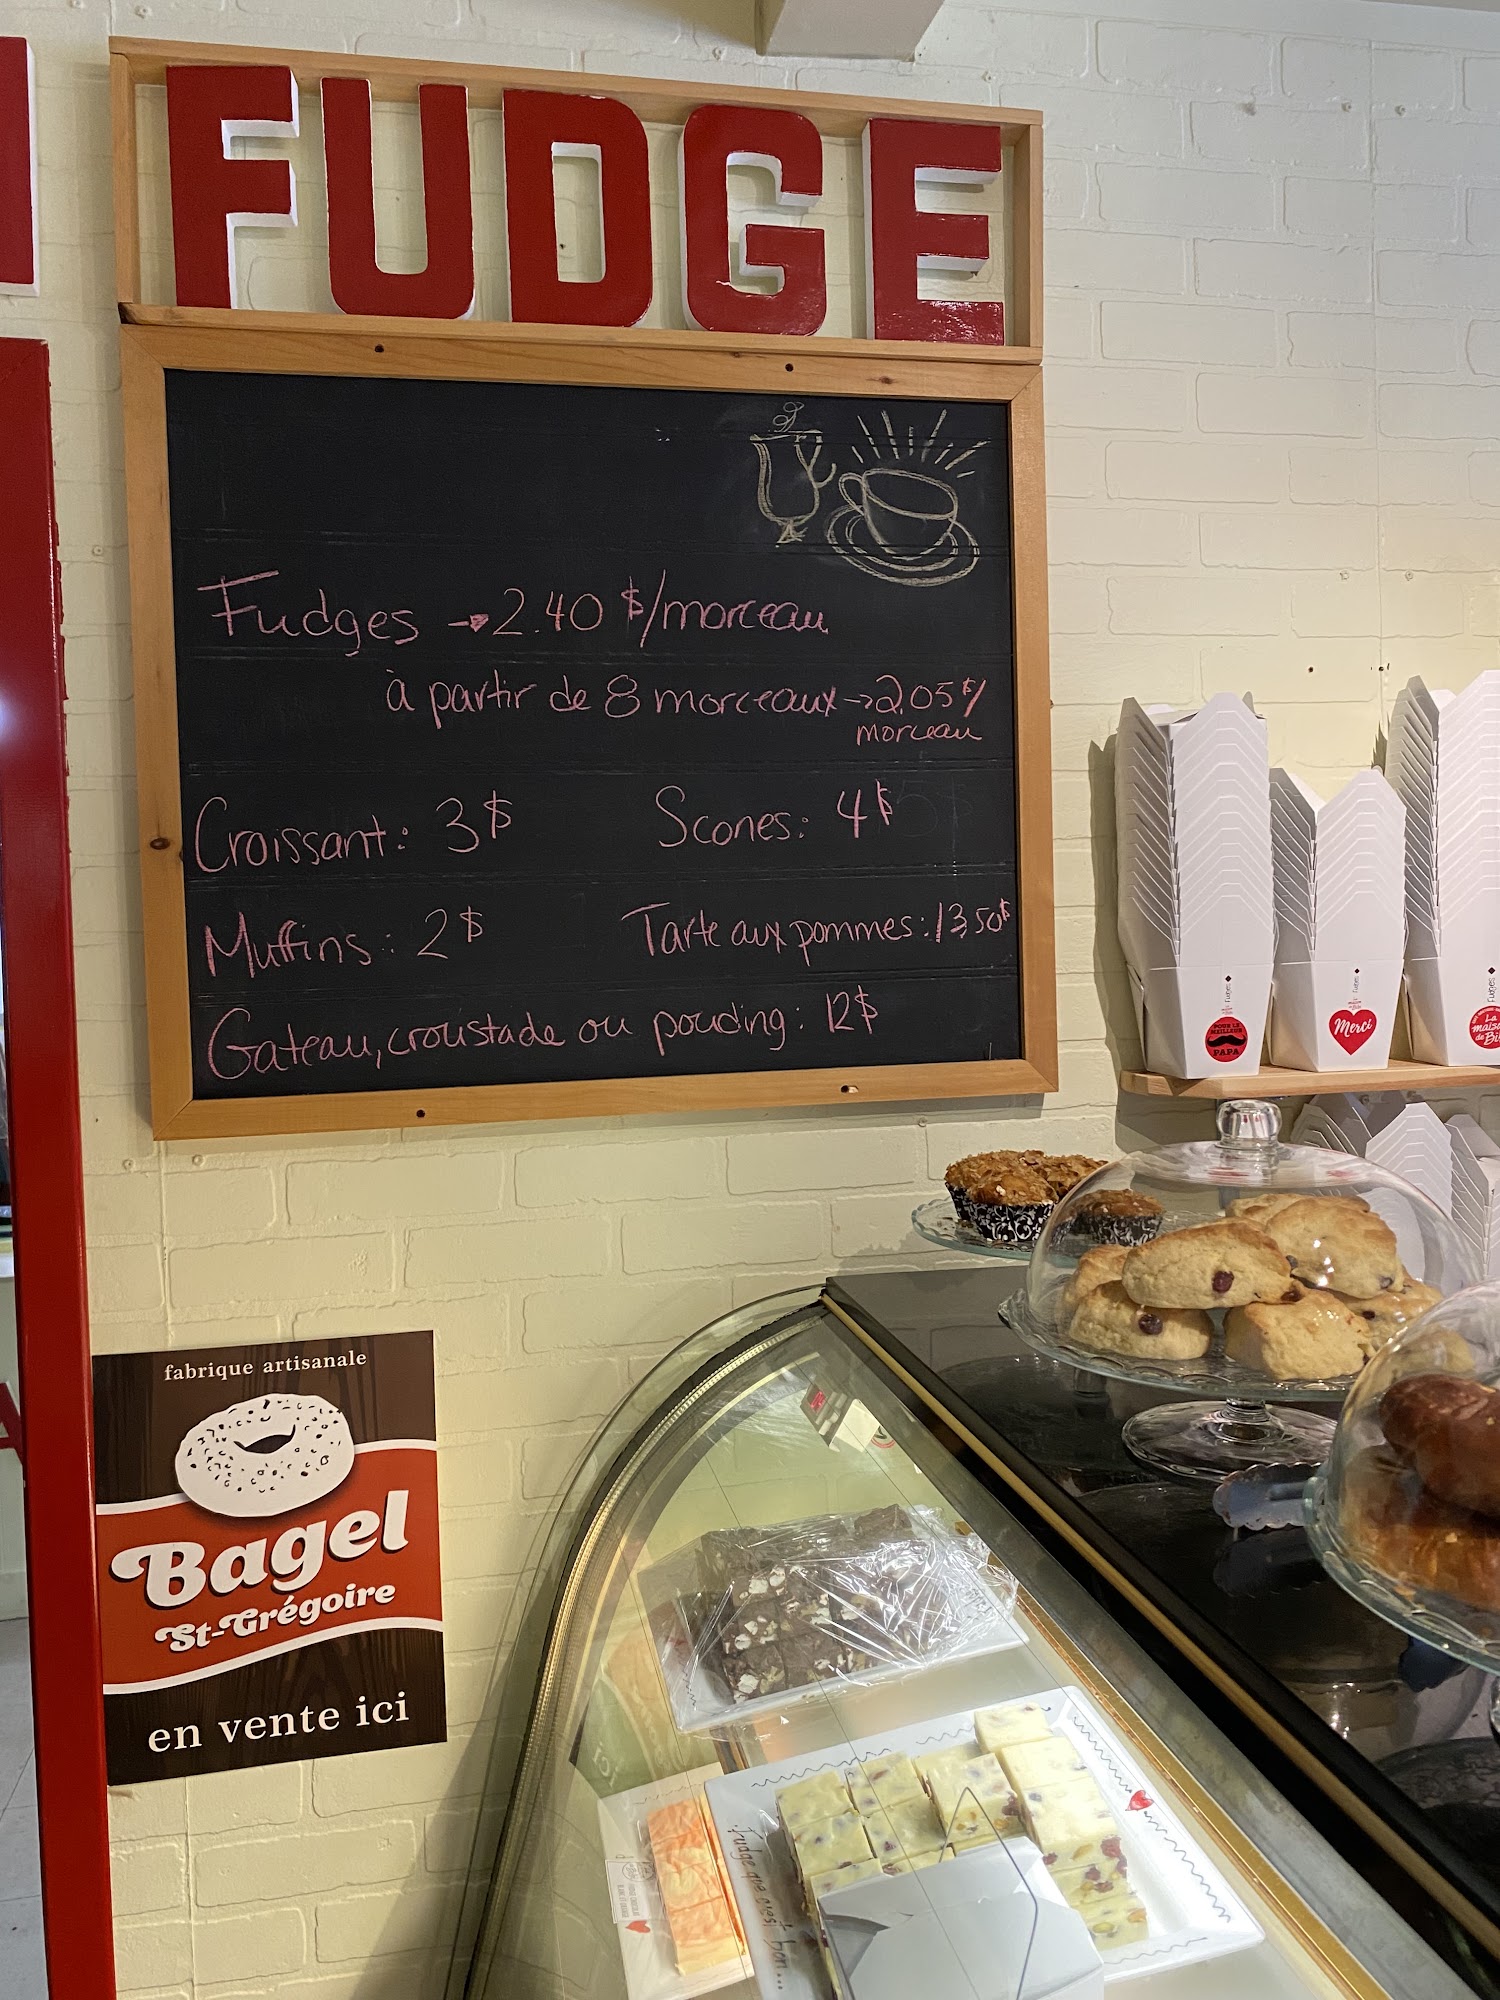 FUDGE
Fudges → 2.40 $/morceau
à partir de 8 morceaux → 2.05 $/
morceau
Croissant : 3 $
Scones : 4 $
Muffins : 2 $
Tarte aux pommes : 13,50 $
Gateau, croustade ou pouding : 12 $
POUR LE
MEILLEUR
PAPA
Fudges
Merci
Fudges
Fudges
La
maison
de Bi
fabrique artisanale
Bagel
St-Grégoire
en vente ici
Fudge que c'est bon...